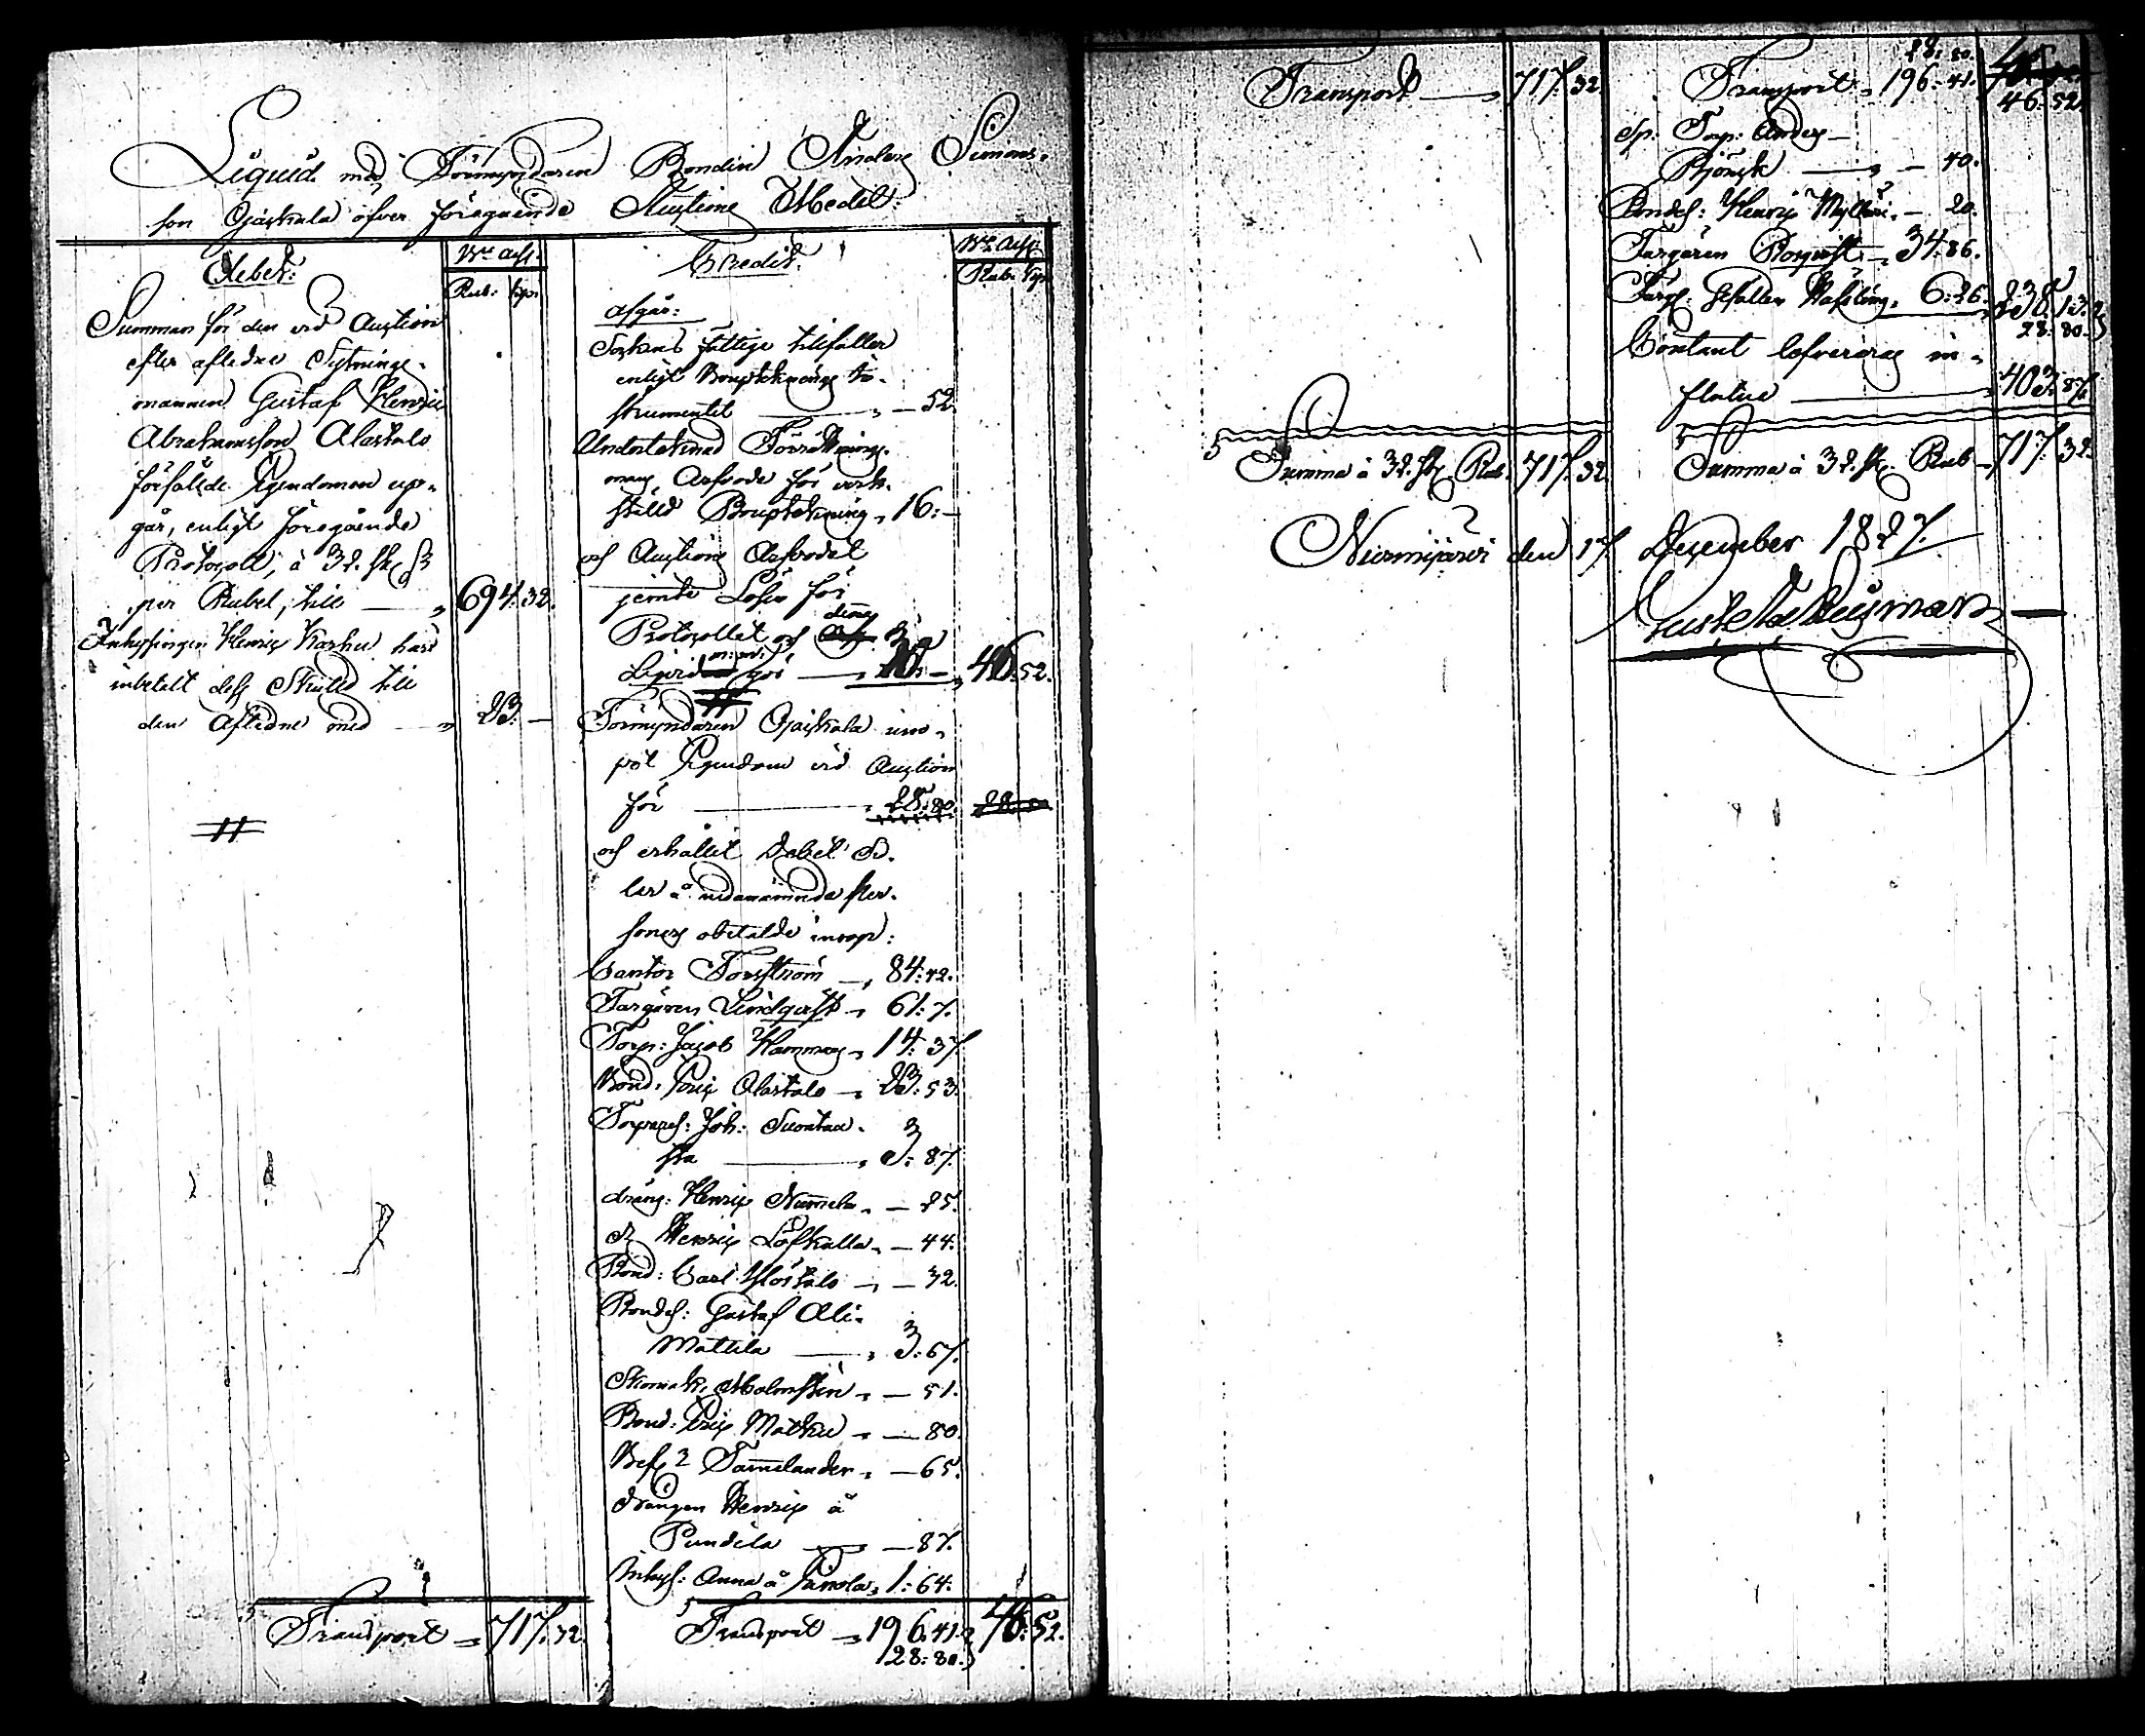 Liquid med Förmyndaren Bonden Anders Simons-
son Ojaskala öfver föregående Auctions Medel:
Debet:
Rub. kop.
Summan för den vid Auction
efter aflidne Sytnings-
mannen Gustaf Henric
Abrahamsson Alastalo
försålde Egendomen upp-
går, enligt föregående
Protocoll, à 32. sk
per Rubel, till — 694: 32.
Inhysingen Henric Karhu har
inbetalt dess Skuld till
den Aflidne med — 23. —
Transport — 717: 32.
Credit.
Rub. kop.
afgår:
Sockens fattige tillfaller
enligt Bouptecknings In-
strumentet — — 52.
Undertecknad Förrättnings-
mans Arfvode för verk-
ställd Bouptekning, 16: —
och Auctions Arfvodet
jemte Lösen för
Protocollet och denna
Liquid gör — 30: — 46: 52.
Förmyndaren Ojaskala inro-
pat Egendom vid Auction
för — 28: 80. 28: 80
och erhållit Debet Sed-
lar å nedannämnde Per-
soners obetalde inrop:
Cantor Forsström — 84: 42.
Fargaren Lindqvist — 61: 7.
Torp: Jacob Hammar — 14: 37.
Bond: Eric Alastalo — 23: 53.
Torpares: Joh: Suontau-
sta — 3: 87.
dräng: Henric Nummela — 25.
d: Henric Löfkulla — 44.
Bond: Carl Ylöstalo — 32.
Bondes: Gustaf Ali-
Mattila — 3: 67.
Skomak. Malmsten — 51.
Bond: Eric Matku — 80.
Befs Tammelander — 65.
drängen Henric å
Pundila — 87.
Inhys: Anna å — 1: 64.
Transport — 196: 41. 46: 52.
28: 80.
Transport — 717: 32
Summa à 32. sk. Rub. 717: 32
28: 80.
Transport — 196: 41.
46: 52
Sp: Torp: Anders
Björsk — — 40.
Bondes: Henric Myllari — 20.
Fargaren Rosqvist — 34: 86.
Färg: Gesällen Wafsling, 6: 26. 238: 13.
28: 80.
Contant lefvereras in-
flutne — 403: 87.
Summa à 32. sk. Rub — 717: 32.
Niemijärvi den 17 December 1827.
Gust. Ad. Heurman